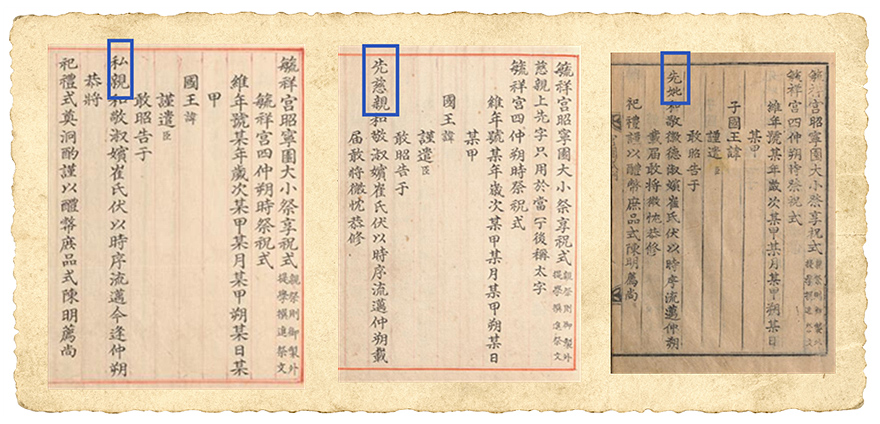 毓祥宮昭寧園大小祭享祝式 親祭則御製外提學撰進祭文
毓祥宮四仲朔時祭祝式
維年號某年歲次某甲某月某甲朔某日某
甲
國王諱
謹遣臣
敢昭告于
私親和敬淑嬪崔氏伏以時序流邁今逢仲朔
恭將
祀禮式奠泂酌謹以醴幣庶品式陳明薦尚
毓祥宮昭寧園大小祭享祝式 親祭則御製外提學撰進祭文
慈親上先字只用於當宁後稱太字
毓祥宮四仲朔時祭祝式
維年號某年歲次某甲某月某甲朔某日
某甲
國王諱
謹遣臣
敢昭告于
先慈親和敬淑嬪崔氏伏以時序流邁仲朔載
届敢將微忱恭修
毓祥宮昭寧園大小祭享祝式 親祭則御製外提學撰進祭文
毓祥宮四仲朔時祭祝式
維年號某年歲次某甲某月某甲朔某日
某甲
子國王諱
謹遣臣
敢昭告于
先妣和敬徽德淑嬪崔氏伏以時序流邁仲朔
載届敢將微忱恭修
祀禮謹以醴幣庶品式陳明薦尚